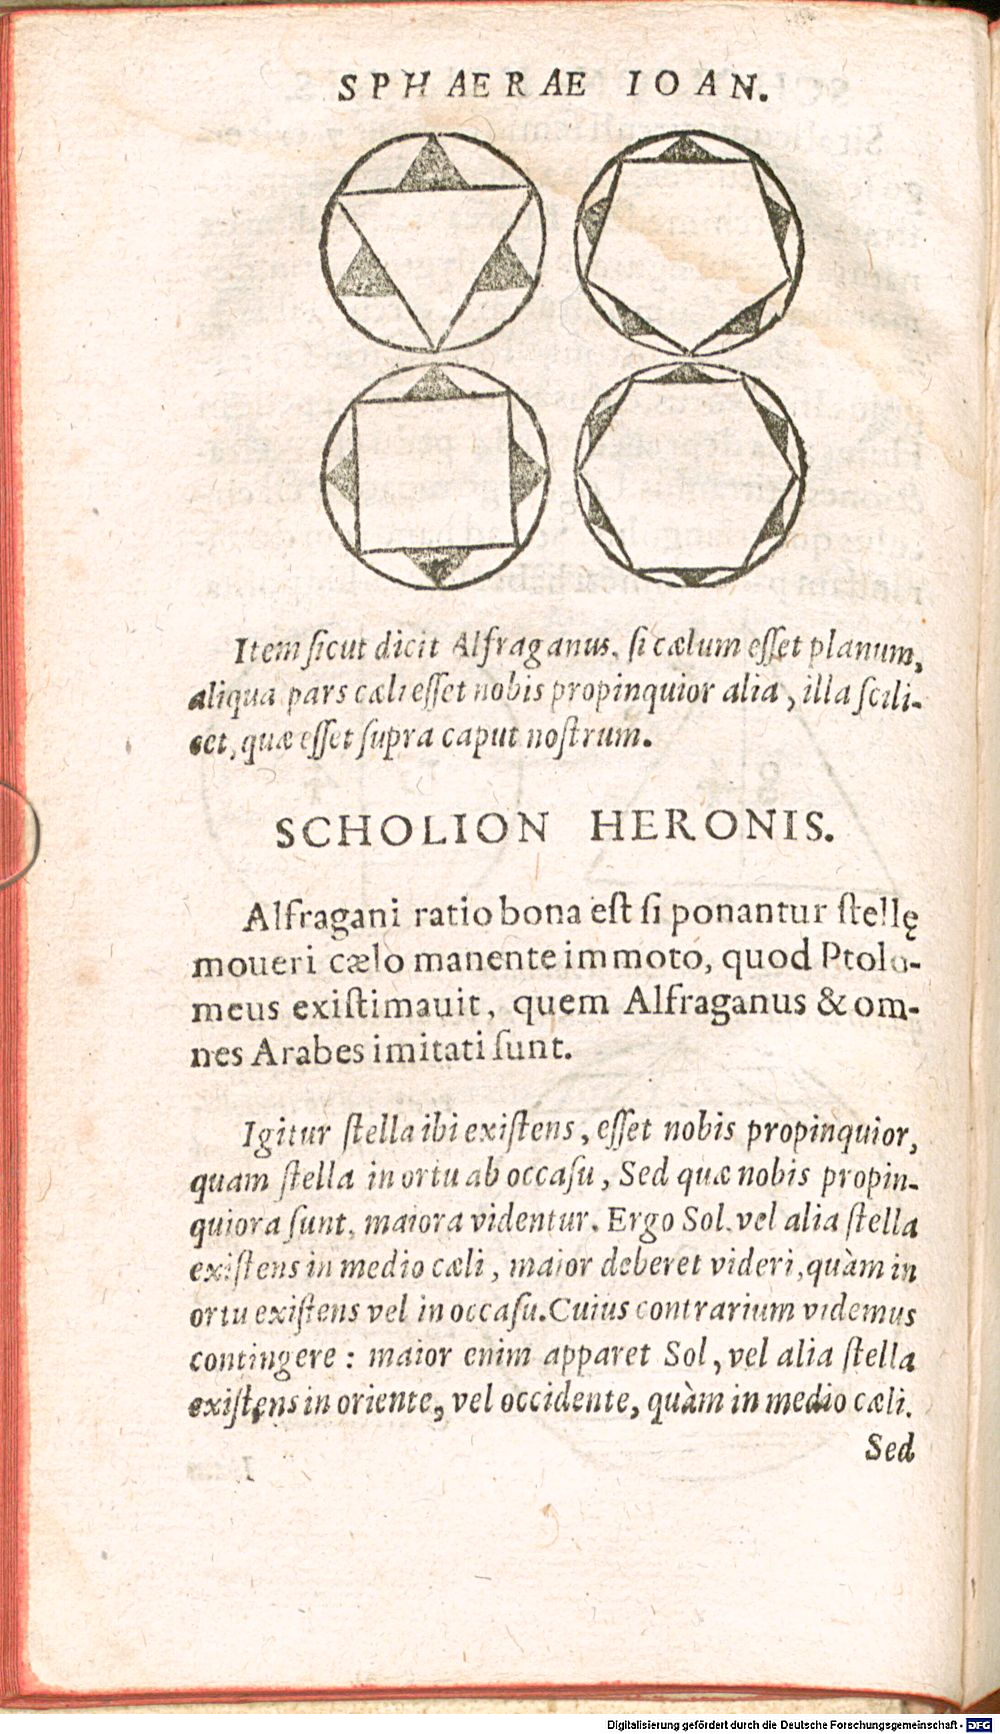 SPHAERAE IOAN.
Item ſicut dicit Alfraganus, ſi cælum eſſet planum,
aliqua pars cæli eſſet nobis propinquior alia, illa ſcili-
cet, quæ eſſet ſupra caput noſtrum.
SCHOLION HERONIS.
Alfragani ratio bona eſt ſi ponantur ſtellę
moueri cælo manente immoto, quod Ptolo-
meus exiſtimauit, quem Alfraganus & om-
nes Arabes imitati ſunt.
Igitur ſtella ibi exiſtens, eſſet nobis propinquior,
quam ſtella in ortu ab occaſu, Sed quæ nobis propin-
quiora ſunt, maiora videntur. Ergo Sol, vel alia ſtella
exiſtens in medio cæli, maior deberet videri, quàm in
ortu exiſtens vel in occaſu. Cuius contrarium videmus
contingere: maior enim apparet Sol, vel alia ſtella
exiſtens in oriente, vel occidente, quàm in medio cæli.
Sed
Digitalisierung gefördert durch die Deutsche Forschungsgemeinschaft - DFG